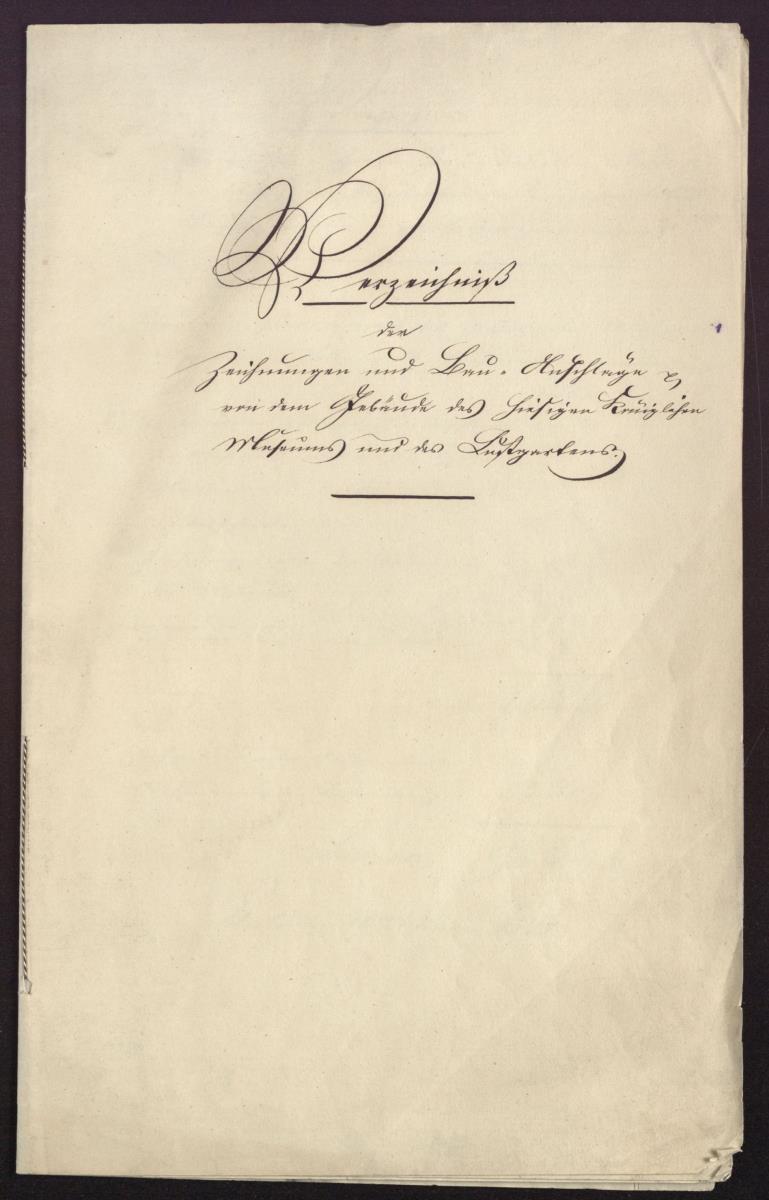 Verzeichniß
der
Zeichnungen und Bau-Anschläge ꝛc
von dem Gebäude des hiesigen Königlichen
Museums und des Lustgartens.